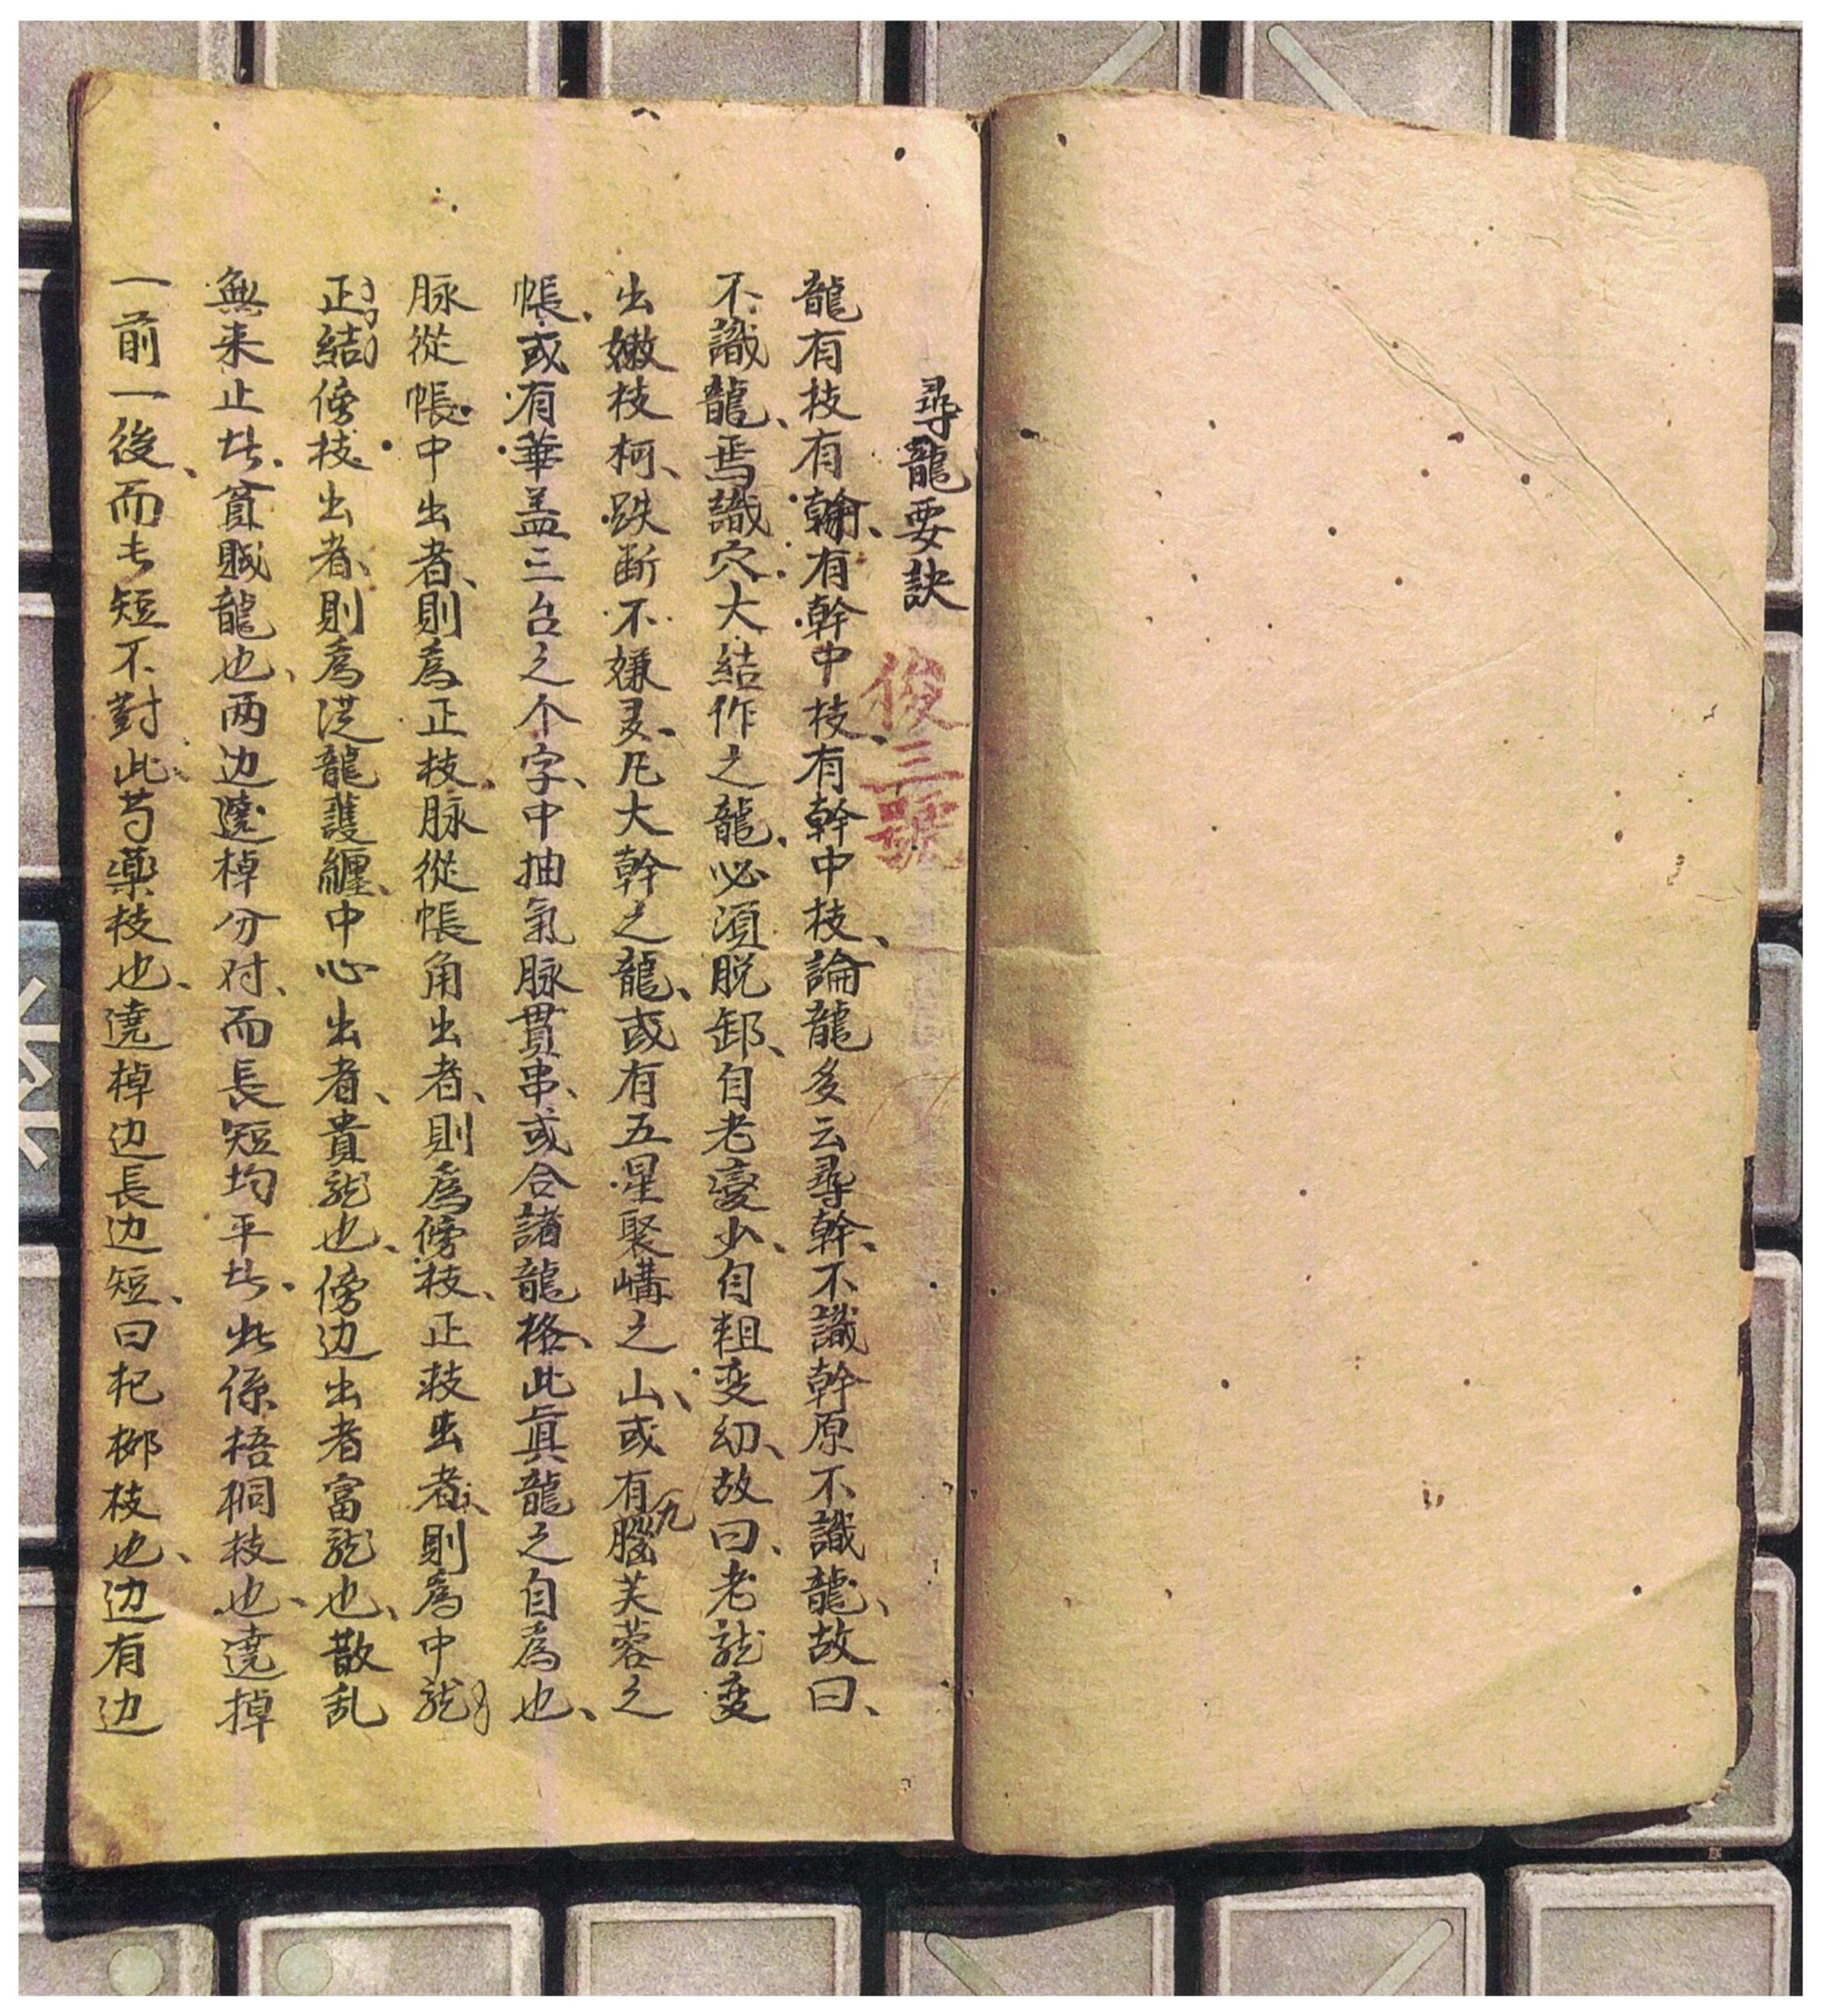 尋龍要訣
俊三號
龍有枝有幹、有幹中枝、有幹中枝、論龍多云尋幹、不識幹原不識龍、故曰、
不識龍、焉識穴、大結作之龍、必須脱卸、自老变少、自粗变幼、故曰、老龍变
出嫩枝柯、跌断不嫌多、凡大幹之龍、或有五星聚講之山、或有九腦芙蓉之
帳、或有華盖三台之个字、中抽氣脉貫串、或合諸龍格、此真龍之自為也、
脉從帳中出者、則為正枝、脉從帳角出者、則為傍枝、正枝出者、則為中龍
正結傍枝出者、則為從龍護纒、中心出者、貴龍也、傍边出者富龍也、散乱
無来止此、貧賊龍也、两边遶棹分对、而長短均平此、此係梧桐枝也、遶掉
一前一後、而長短不對此芍藥枝也、遶棹边長边短、曰杞柳枝也、边有边